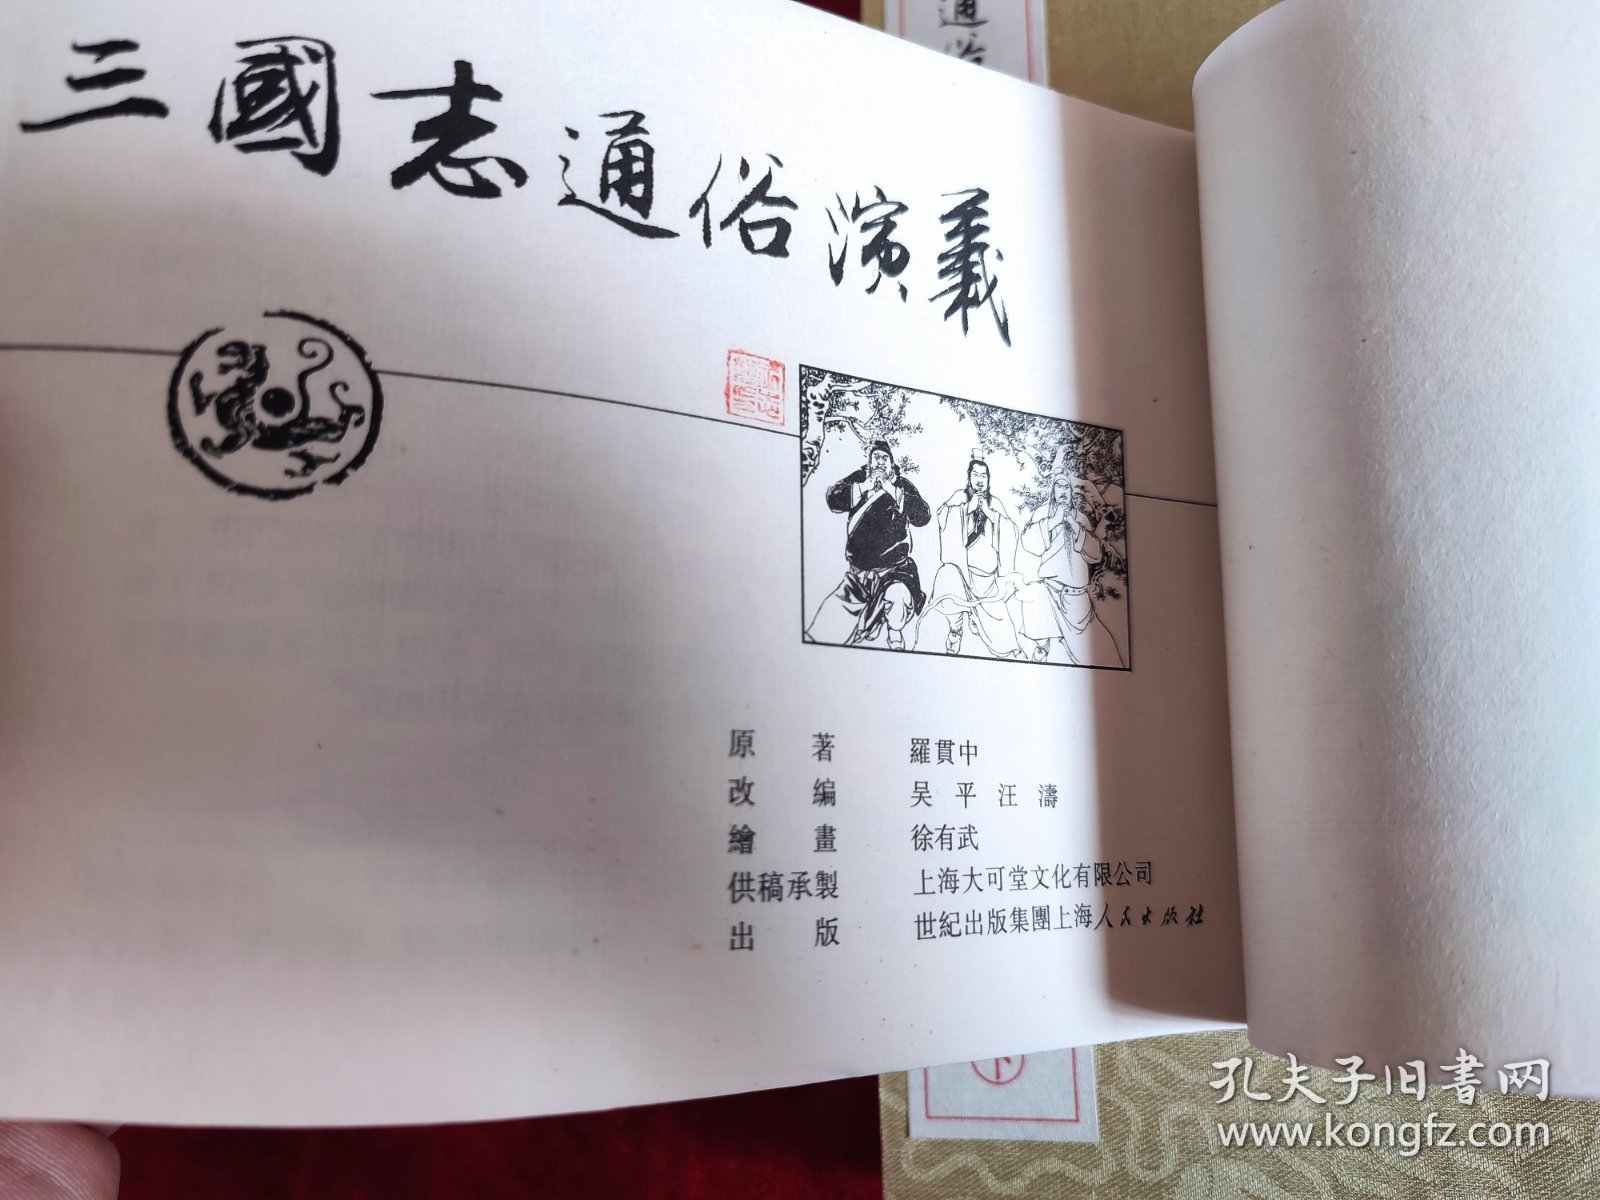 三國志通俗演義
原著 羅貫中
改編 吴平 汪濤
繪畫 徐有武
供稿承製 上海大可堂文化有限公司
出版 世紀出版集團上海人民出版社
通俗
下
孔夫子旧書网
www.kongfz.com